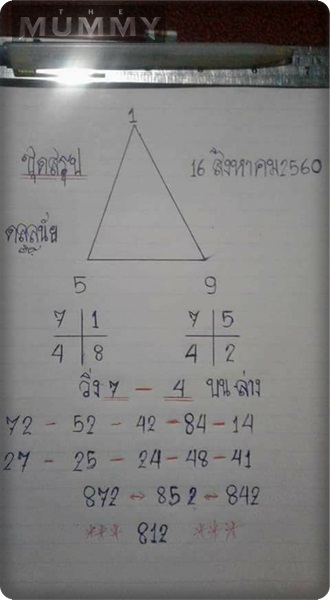 THE
MUMMY
1
ชุดสรุป
16 สิงหาคม2560
5 9
7 | 1 7 | 5
4 | 8 4 | 2
วิ่ง 7 - 4 บน ล่าง
72 - 52 - 42 - 84 - 14
27 - 25 - 24 - 48 - 41
872 ↔ 852 ↔ 842
*** 812 ***